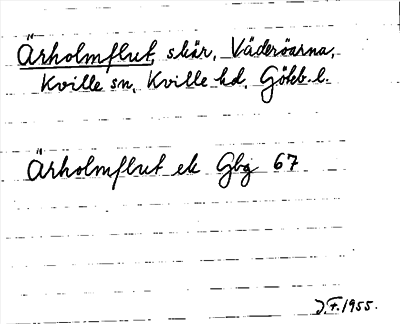 Ärholmflut, skär, Väderöarna,
Kville sn, Kville hd, Göteb. l.
Ärholmflut ek Gbg 67
J.F. 1955.